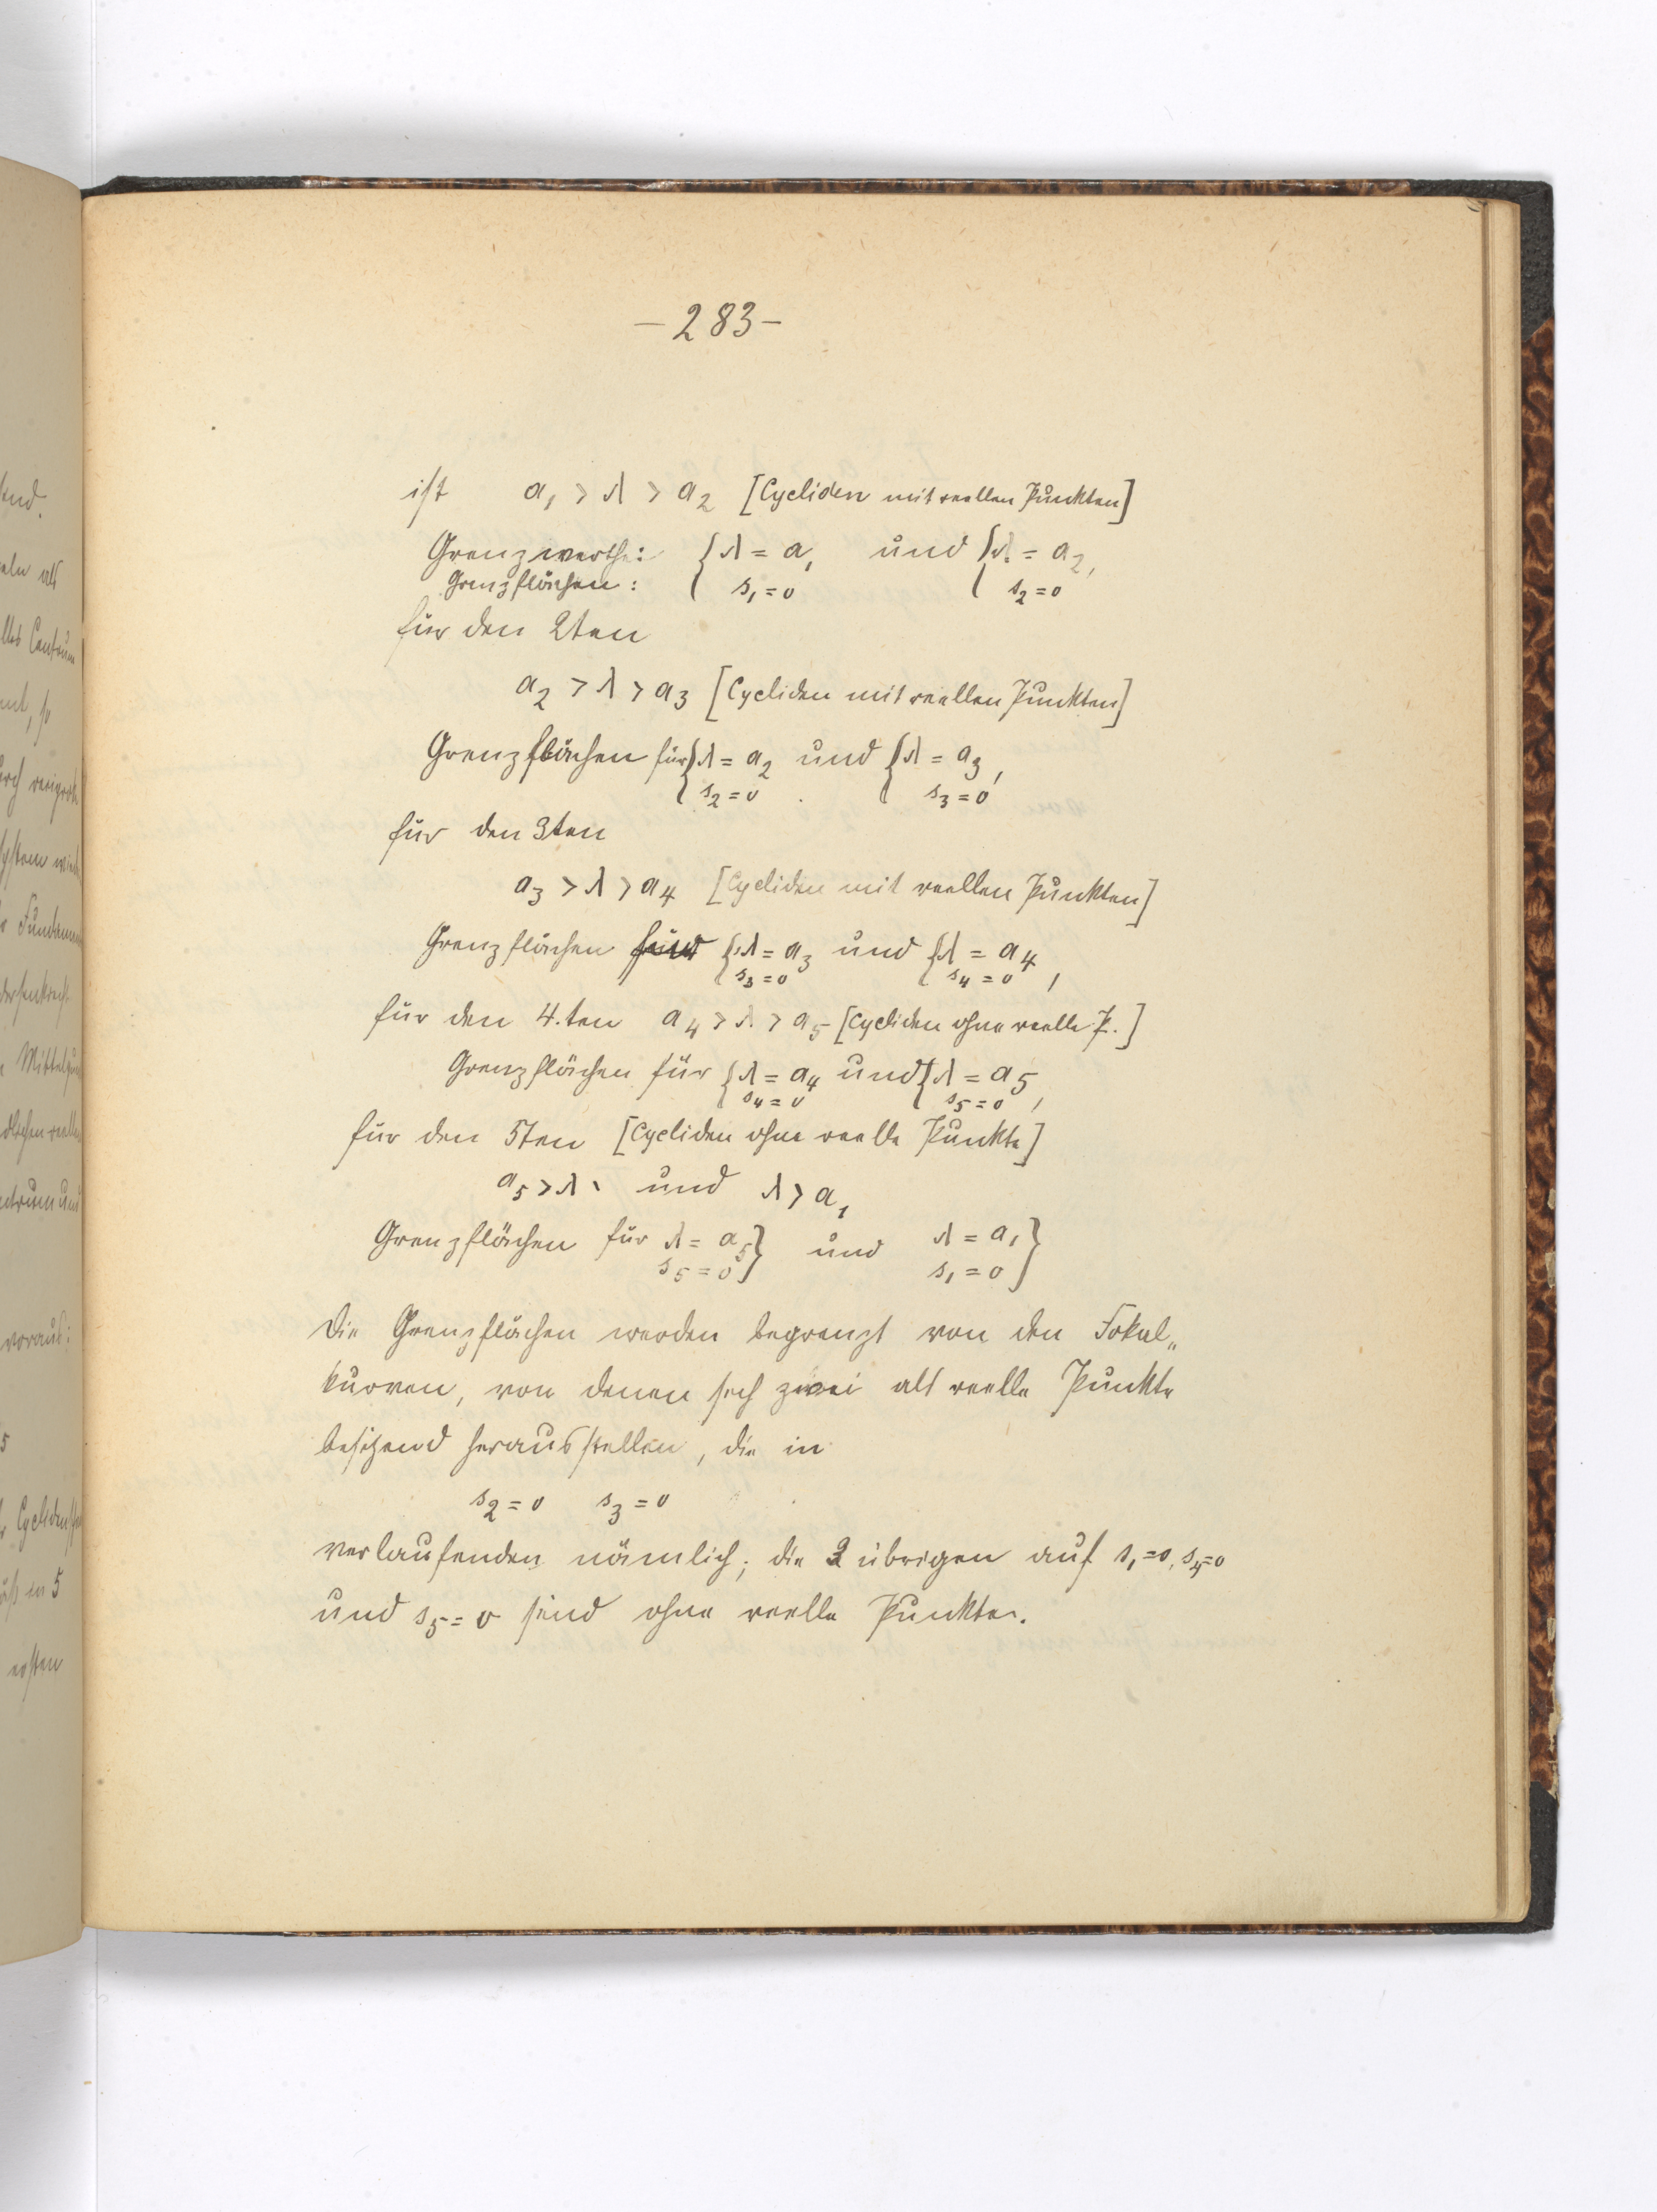 – 283 –
ist a₁ > λ > a₂ [Cycliden mit reellen Punkten]
Grenzwerthe: { λ = a₁ und { λ = a₂,
Grenzflächen: s₁ = 0 s₂ = 0
für den 2ten
a₂ > λ > a₃ [Cycliden mit reellen Punkten]
Grenzflächen für { λ = a₂ und { λ = a₃,
s₂ = 0 s₃ = 0
für den 3ten
a₃ > λ > a₄ [Cycliden mit reellen Punkten]
Grenzflächen für { λ = a₃ und { λ = a₄
s₃ = 0 s₄ = 0,
für den 4.ten a₄ > λ > a₅ [Cycliden ohne reelle P.]
Grenzflächen für { λ = a₄ und { λ = a₅
s₄ = 0 s₅ = 0,
für den 5ten [Cycliden ohne reelle Punkte]
a₅ > λ und λ > a₁
Grenzflächen für λ = a₅ } und λ = a₁ }
s₅ = 0 s₁ = 0
Die Grenzflächen werden begrenzt von den Fokal„
kurven, von denen sich zwei als reelle Punkte
besitzend herausstellen, die in
s₂ = 0 s₃ = 0
verlaufenden nämlich; die 3 übrigen auf s₁ = 0, s₄ = 0
und s₅ = 0 sind ohne reelle Punkte.